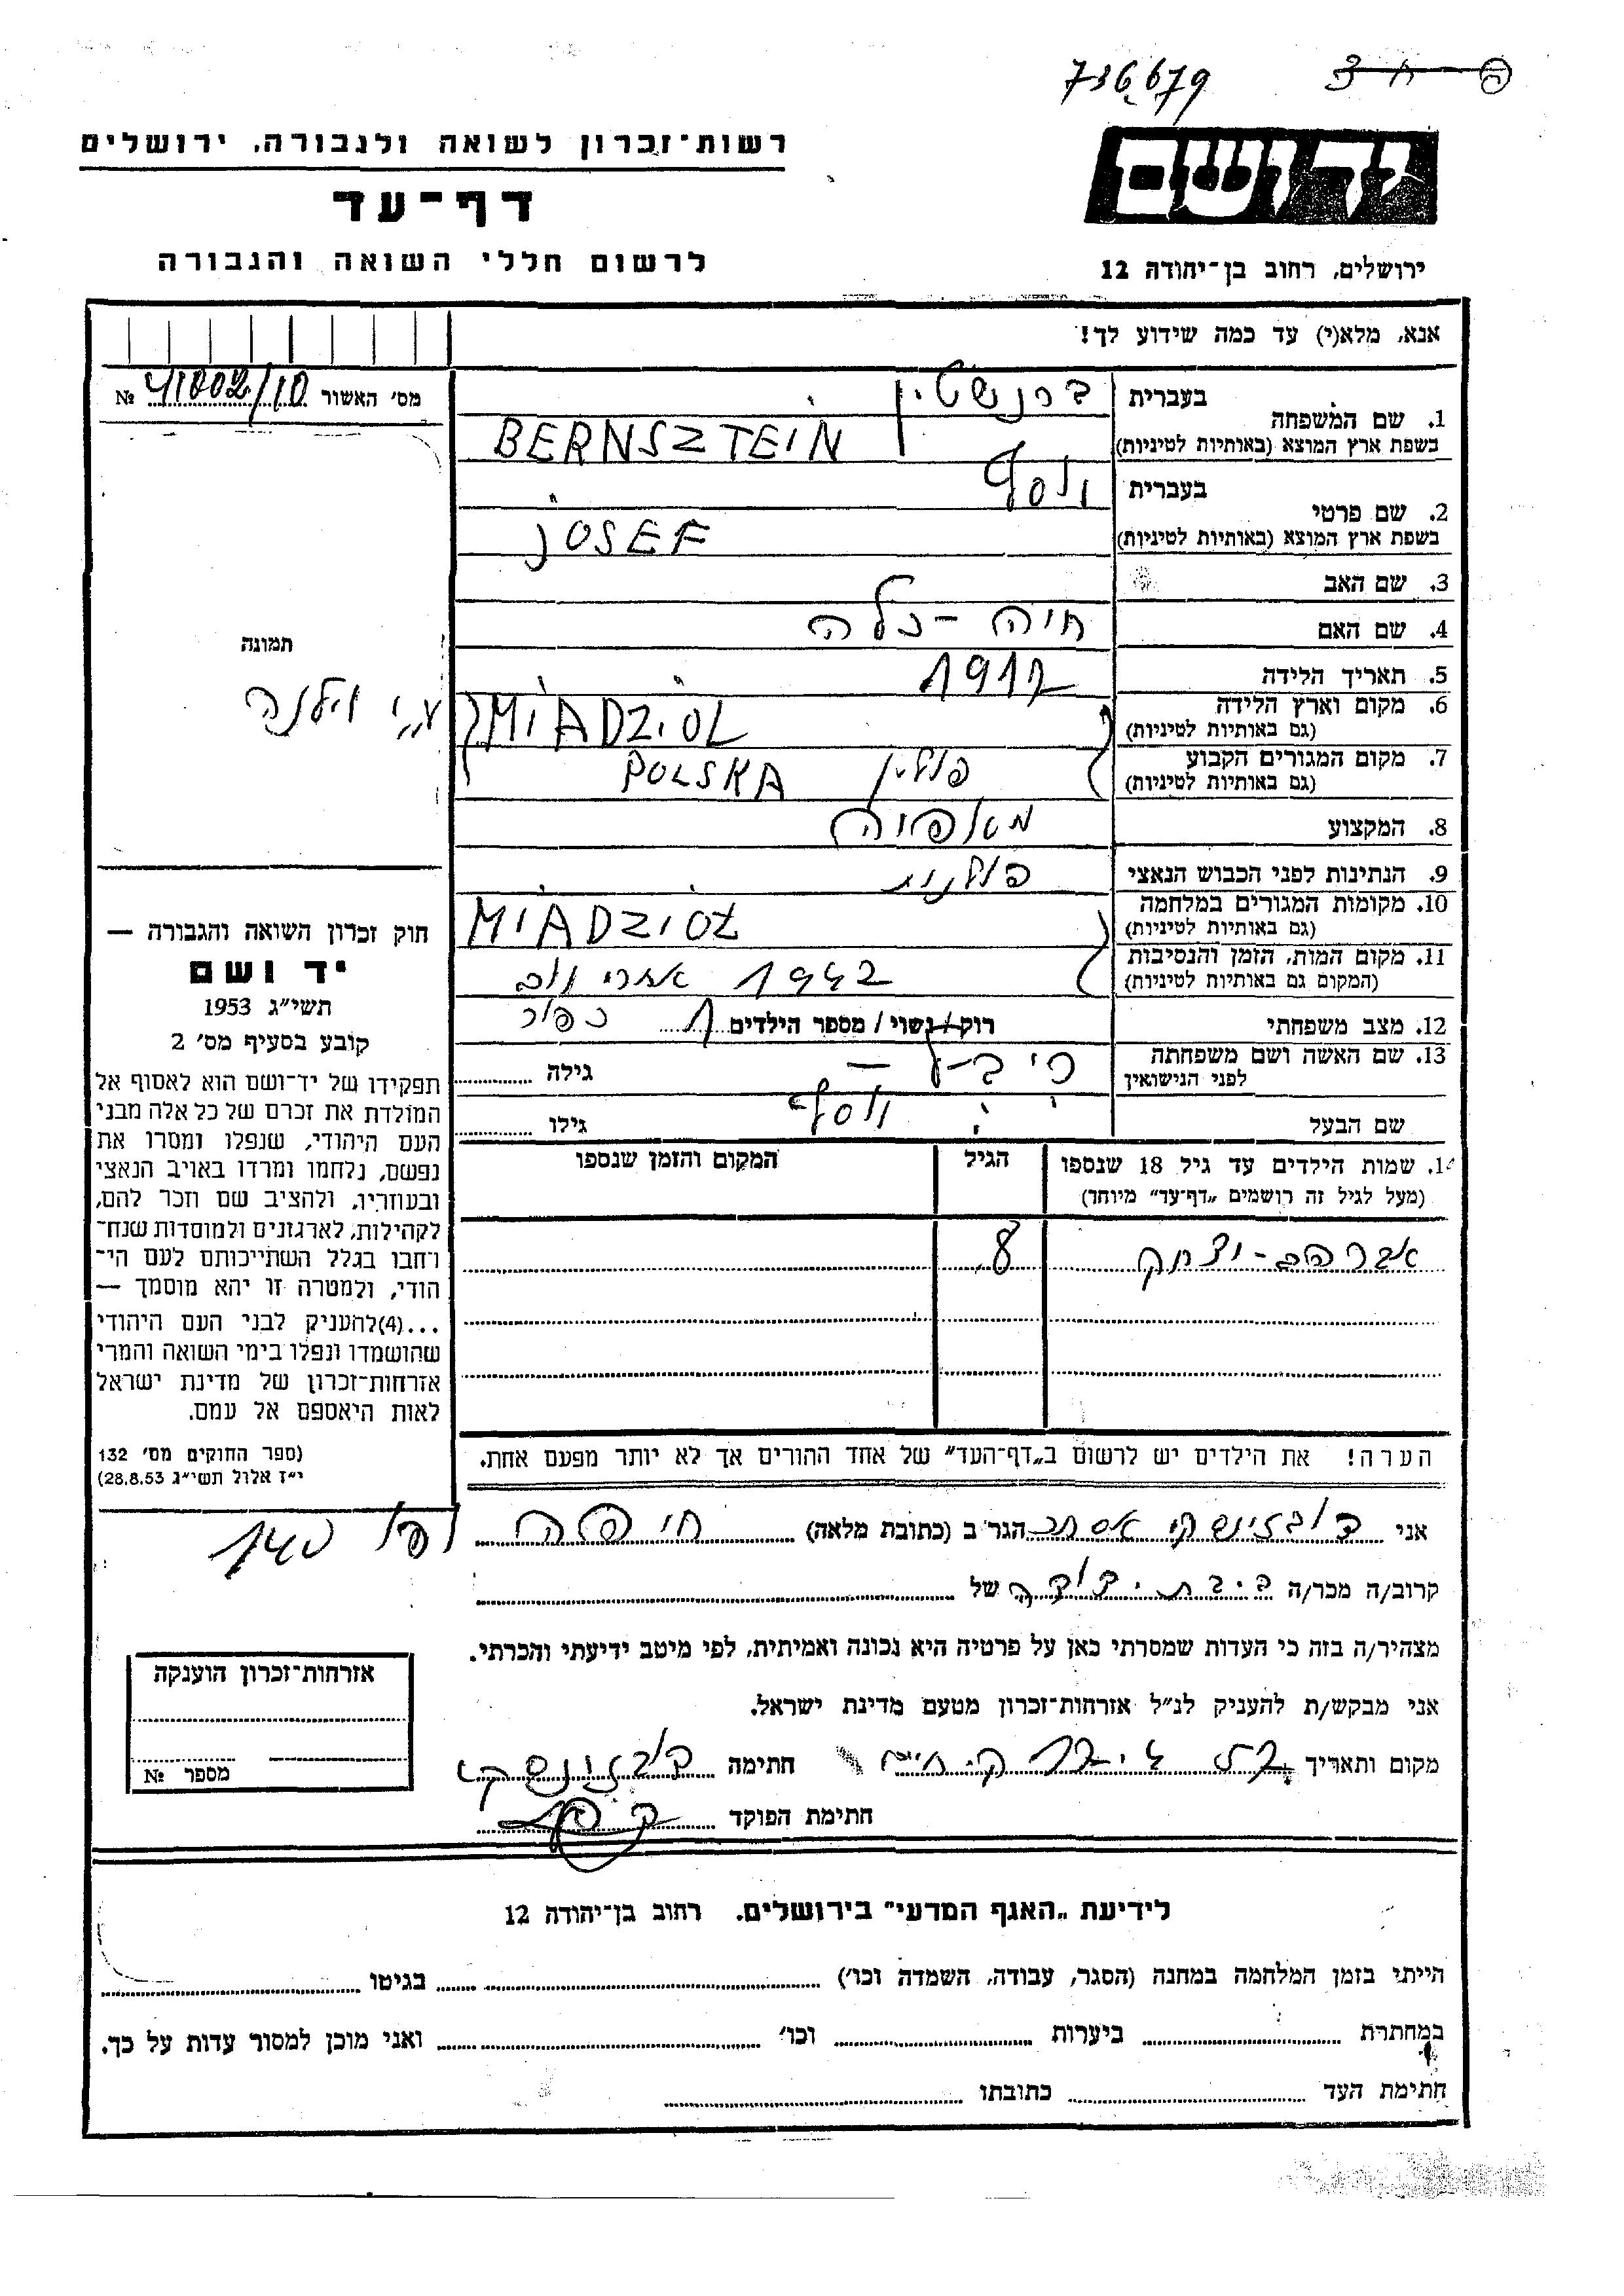 736.679
רשות־זכרון לשואה ולגבורה, ירושלים
דף־עד
לרשום חללי השואה והגבורה
יד ושם
ירושלים, רחוב בן־יהודה 12
אנא, מלא(י) עד כמה שידוע לך!
מס' האשור 41002/10 №
1. שם המשפחה
בעברית ברנשטיין
בשפת ארץ המוצא (באותיות לטיניות) BERNSZTEIN
2. שם פרטי
בעברית יוסף
בשפת ארץ המוצא (באותיות לטיניות) JOSEF
3. שם האב
4. שם האם חיה -
5. תאריך הלידה 1917
6. מקום וארץ הלידה
(גם באותיות לטיניות) MIADZIOL ע"י וילנה
7. מקום המגורים הקבוע
(גם באותיות לטיניות) פולין POLSKA
8. המקצוע
9. הנתינות לפני הכבוש הנאצי פולנית
10. מקומות המגורים במלחמה
(גם באותיות לטיניות) MIADZIOŁ
11. מקום המות, הזמן והנסיבות
(המקום גם באותיות לטיניות) 1942
12. מצב משפחתי רוק/נשוי / מספר הילדים 1
13. שם האשה ושם משפחתה
לפני הנישואין גילה
שם הבעל יוסף גילו
14. שמות הילדים עד גיל 18 שנספו
(מעל לגיל זה רושמים „דף־עד" מיוחד)
הגיל
המקום והזמן שנספו
אברהם - יצחק 8
הערה! את הילדים יש לרשום ב„דף־העד" של אחד ההורים אך לא יותר מפעם אחת.
תמונה
חוק זכרון השואה והגבורה —
יד ושם
תשי"ג 1953
קובע בסעיף מס' 2
תפקידו של יד־ושם הוא לאסוף אל
המולדת את זכרם של כל אלה מבני
העם היהודי, שנפלו ומסרו את
נפשם, נלחמו ומרדו באויב הנאצי
ובעוזריו, ולהציב שם וזכר להם,
לקהילות, לארגונים ולמוסדות שנח־
רבו בגלל השתייכותם לעם הי־
הודי, ולמטרה זו יהא מוסמך —
...(4)להעניק לבני העם היהודי
שהושמדו ונפלו בימי השואה והמרי
אזרחות־זכרון של מדינת ישראל
לאות היאספם אל עמם.
(ספר החוקים מס' 132
י"ז אלול תשי"ג 28.8.53)
אני אסתר הגר ב (כתובת מלאה) חיפה 140
קרוב/ה מכר/ה של
מצהיר/ה בזה כי העדות שמסרתי כאן על פרטיה היא נכונה ואמיתית, לפי מיטב ידיעתי והכרתי.
אני מבקש/ת להעניק לנ"ל אזרחות־זכרון מטעם מדינת ישראל.
מקום ותאריך חתימה
חתימת הפוקד
אזרחות־זכרון הוענקה
מספר №
לידיעת „האגף המדעי" בירושלים, רחוב בן־יהודה 12
הייתי בזמן המלחמה במחנה (הסגר, עבודה, השמדה וכו') בגיטו
במחתרת ביערות וכו' ואני מוכן למסור עדות על כך.
חתימת העד כתובתו